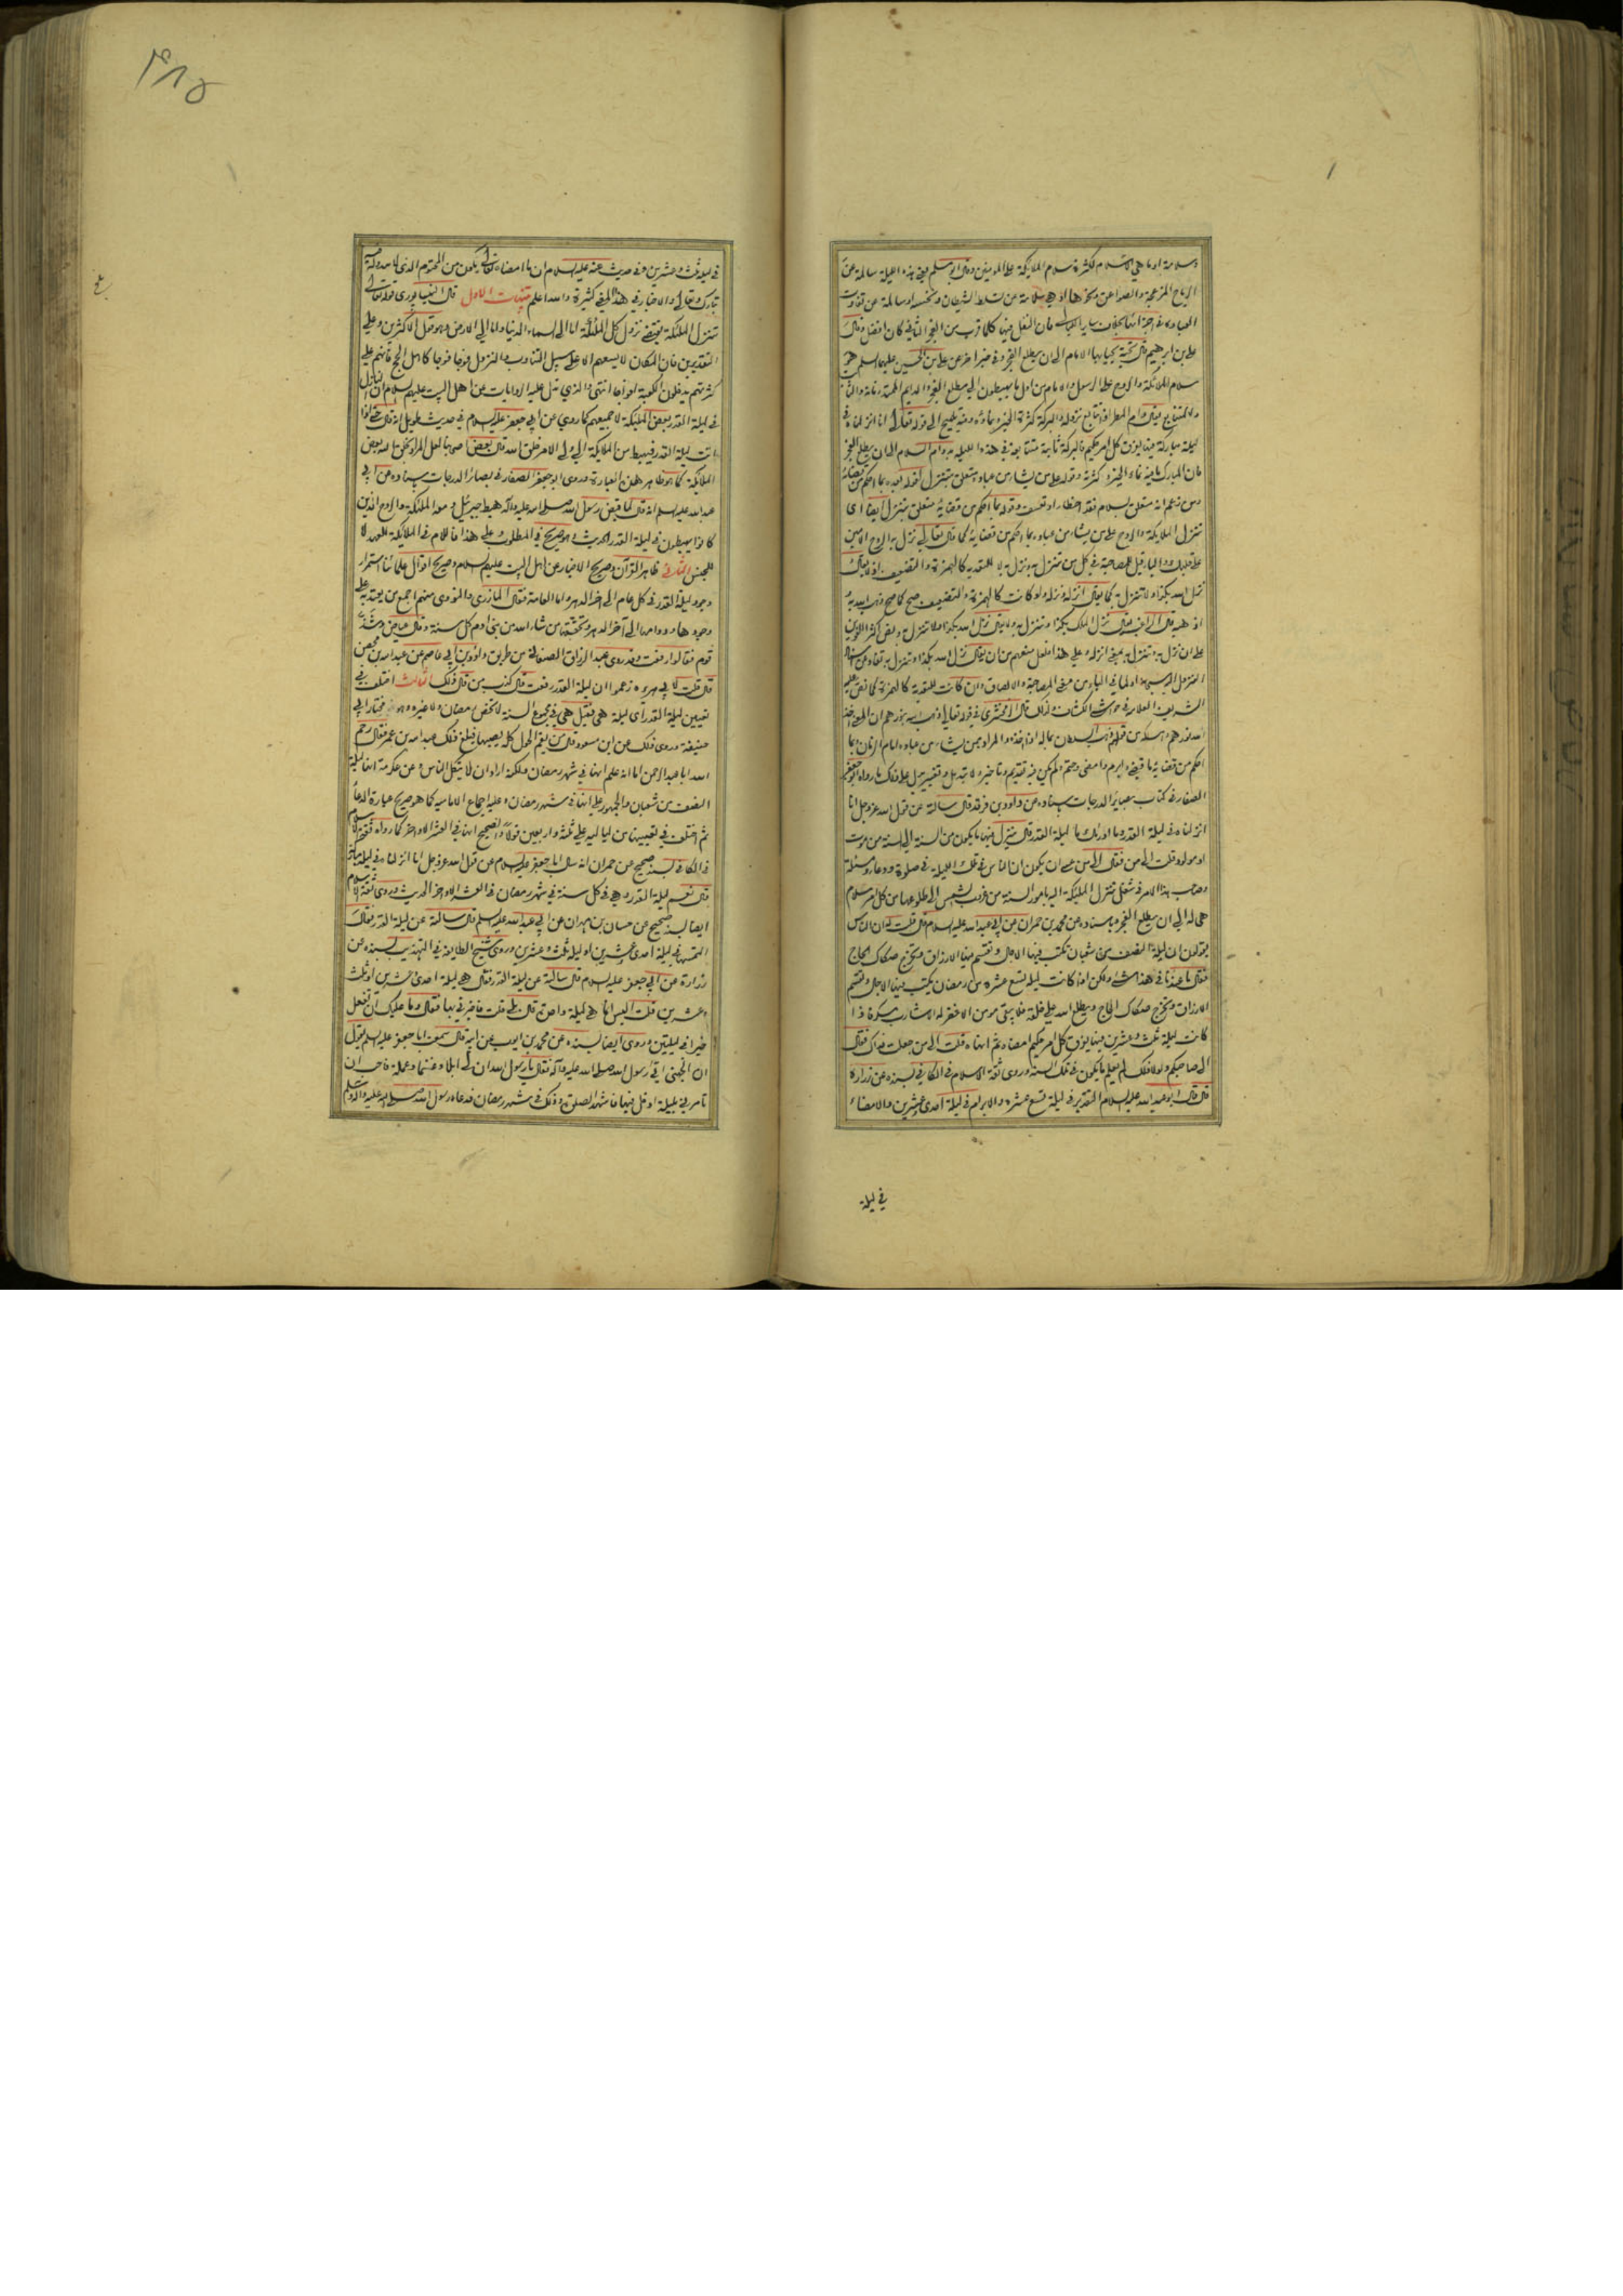 وسلامة او ما هي الا سلام لكثرة سلام الملائكة على المؤمنين وقال ابو مسلم يعني هذه الليلة سالمة عن
الرياح المزعجة والصواعق ونحوها او هي سلامة عن تسلط الشيطان ونحسه او سالمة عن تفاوت
العبادة في اجزائها بخلاف ساير الليالي فان النفل فيها كلما قرب من الفجر الثاني كان افضل وقال
علي بن ابرهيم قال تحية يحيا بها الامام الى ان يطلع الفجر وفي خبر اخر عن علي بن الحسين عليهما السلم
سلام الملائكة والروح على الرسول والامام من اول ما يهبطون الى مطلع الفجر والدايم الممتد زمانه
والمتتابع يقال دام المطر اذا تتابع نزوله والبركة كثرة الخير ونماؤه وفيه تلميح الى قوله تعالى انا انزلناه في
ليلة مباركة فيها يفرق كل امر حكيم فالبركة ثابتة متتابعة في هذه الليلة بدوام السلام الى ان يطلع الفجر
فان المبارك ما فيه نماء الخير وكثرته وقوله على من يشاء من عباده متعلق بتنزل
ومن زعم انه متعلق بسلام فقد اخطأ وتعسف وقوله بما احكم من قضائه متعلق بتنزل ايضا اي
تنزل الملائكة والروح على من يشاء من عباده بما احكم من قضائه كما قال تعالى نزل به الروح الامين
على قلبك والباء قيل للمصاحبة في كل من تنزل به ونزل به لا للتعدية كالهمزة والتضعيف اذ لا يقال
نزل الله بكذا ولا تنزل به كما يقال انزله ونزله ولو كانت كالهمزة والتضعيف صح كما صح ذهب الله به
اذهبه قال الراغب يقال نزل الملك بكذا وتنزل به ولا يقال نزل الله بكذا ولا تنزل به ونص اكثر اللغويين
على ان نزل به وتنزل به بمعنى انزله وعلى هذا فلعل منعهم من ان يقال نزل الله بكذا وتنزل به
النزول اليه سبحانه ولما في الباء من معنى المصاحبة والالصاق وان كانت للتعدية كالهمزة كما نص عليه
الشريف العلامة في حواشي الكشاف وقال الزمخشري في قوله تعالى ذهب الله بنورهم ان المعنى اخذ
الله نورهم وامسكه من قولهم ذهب السلطان بماله اذا اخذه والمراد بمن يشاء من عباده امام الزمان وبما
احكم من قضائه ما قضي وابرم وامضي وحتم ولم يكن فيه تقديم وتاخير ولا تبديل وتغيير يدل على ذلك ما رواه ابو جعفر
الصفار في كتاب بصاير الدرجات باسناده عن داود بن فرقد قال سالته عن قول الله عز وجل انا
انزلناه في ليلة القدر وما ادريك ما ليلة القدر قال ينزل فيها ما يكون من السنة الى السنة من موت
او مولود قلت الى من فقال الى من عسى ان يكون ان الناس في تلك الليلة في صلوة ودعاء ومسئلة
وصاحب هذا الامر في شغل تنزل الملئكة اليه بامور السنة من غروب الشمس الى طلوعها من كل امر سلام
هي له الى ان يطلع الفجر وباسناده عن محمد بن حمران عن ابي عبد الله عليه السلام قال قلت له ان الناس
يقولون ان ليلة النصف من شعبان تكتب فيها الاجال وتقسم فيها الارزاق وتخرج صكاك الحاج
فقال ما عندنا في هذا شيء ولكن اذا كانت ليلة تسع عشرة من رمضان يكتب فيها الاجال وتقسم
الارزاق وتخرج صكاك الحاج ويطلع الله على خلقه فلا يبقى مومن الا غفر له الا شارب مسكر فاذا
كانت ليلة ثلث وعشرين فيها يفرق كل امر حكيم امضاه ثم انهاه قلت الى من جعلت فداك فقال
الى صاحبكم ولولا ذلك لم يعلم ما يكون في تلك السنة وروى ثقة الاسلام في الكافي بسنده عن زرارة
قال قال ابو عبد الله عليه السلام التقدير في ليلة تسع عشرة والابرام في ليلة احدى وعشرين والامضاء
في ليلة
٤٨٥
في ليلة ثلث وعشرين وفي حديث عنه عليه السلام ان ما امضاه يكون من المحتوم الذي لا يبدو له فيه
تبارك وتعالى والاخبار في هذا المعنى كثيرة والله اعلم تنبيهات الاول قال النيسابوري قوله تعالى
تنزل الملئكة يقتضي نزول كل الملئكة اما الى السماء الدنيا واما الى الارض وهو قول الاكثرين وعلى
التقديرين فان المكان لا يسعهم الا على سبيل التناوب والنزول فوجا فوجا كاهل الحج فانهم على
كثرتهم يدخلون الكعبة افواجا انتهى والذي تدل عليه الروايات عن اهل البيت عليهم السلام ان النازل
في ليلة القدر بعض الملئكة لا جميعهم كما روي عن ابي جعفر عليه السلام في حديث طويل انه قال حتى اذا
اتت ليلة القدر فيهبط من الملائكة الى ولي الامر خلق الله قال بعض اصحابنا لعل المراد بخلق الله بعض
الملائكة كما هو ظاهر هذه العبارة وروى ابو جعفر الصفار في بصائر الدرجات باسناده عن ابي
عبد الله عليه السلم انه قال لما قبض رسول الله صلى الله عليه وآله هبط جبرئيل ومعه الملئكة والروح الذين
كانوا يهبطون في ليلة القدر الحديث وهو صريح في المطلوب وعلى هذا فاللام في الملائكة للعهد لا
للجنس الثاني ظاهر القرآن وصريح الاخبار عن اهل البيت عليهم السلام وصريح اقوال علمائنا استمرار
وجود ليلة القدر في كل عام الى اخر الدهر واما العامة فقال المازري والنووي منهم اجمع من يعتد به على
وجودها ودوامها الى آخر الدهر وتحققها من شاء الله من بني ادم كل سنة وقال عياض وشذ
قوم فقالوا رفعت وقد روى عبد الرزاق الصنعاني من طريق داود بن ابي عاصم عن عبد الله بن محصن
قال قلت لابي هريرة زعموا ان ليلة القدر رفعت قال كذب من قال ذلك الثالث اختلف في
تعيين ليلة القدر اي ليلة هي فقيل هي في مجموع السنة لا تخص رمضان ولا غيره وهو مختار ابي
حنيفة وروي ذلك عن ابن مسعود قال من يقم الحول كله يصبها فبلغ ذلك عبد الله بن عمر فقال رحم
الله ابا عبد الرحمن اما انه علم انها في شهر رمضان ولكنه اراد ان لا يتكل الناس وعن عكرمة انها ليلة
النصف من شعبان والجمهور على انها في شهر رمضان وعليه اجماع الامامية كما هو صريح عبارة الدعاء
ثم اختلف في تعيينها من لياليه على ثلثة واربعين قولا والصحيح انها في العشر الاواخر كما رواه ثقة الاسلام
في الكافي بسند صحيح عن حمران انه سال ابا جعفر عليه السلام عن قول الله عز وجل انا انزلناه في ليلة مباركة
قال نعم ليلة القدر وهي في كل سنة في شهر رمضان في العشر الاواخر الحديث وروى ثقة الاسلام
ايضا بسند صحيح عن حسان بن مهران عن ابي عبد الله عليه السلم قال سالته عن ليلة القدر فقال
التمسها في ليلة احدى وعشرين او ليلة ثلث وعشرين وروى شيخ الطايفة في التهذيب بسنده عن
زرارة عن ابي جعفر عليه السلام قال سالته عن ليلة القدر فقال هي ليلة احدى وعشرين او ثلث
وعشرين قلت اليس انما هي ليلة واحدة قال بلى قلت فاخبرني بها فقال وما عليك ان تفعل
خيرا في ليلتين وروى ايضا بسنده عن محمد بن ايوب عن ابيه قال سمعت ابا جعفر عليه السلم يقول
ان الجهني اتى رسول الله صلى الله عليه وآله فقال يا رسول الله ان لي ابلا وغنما وعملة فاحب ان
تامرني بليلة ادخل فيها فاشهد الصلوة وذلك في شهر رمضان فدعاه رسول الله صلى الله عليه وآله وسلم